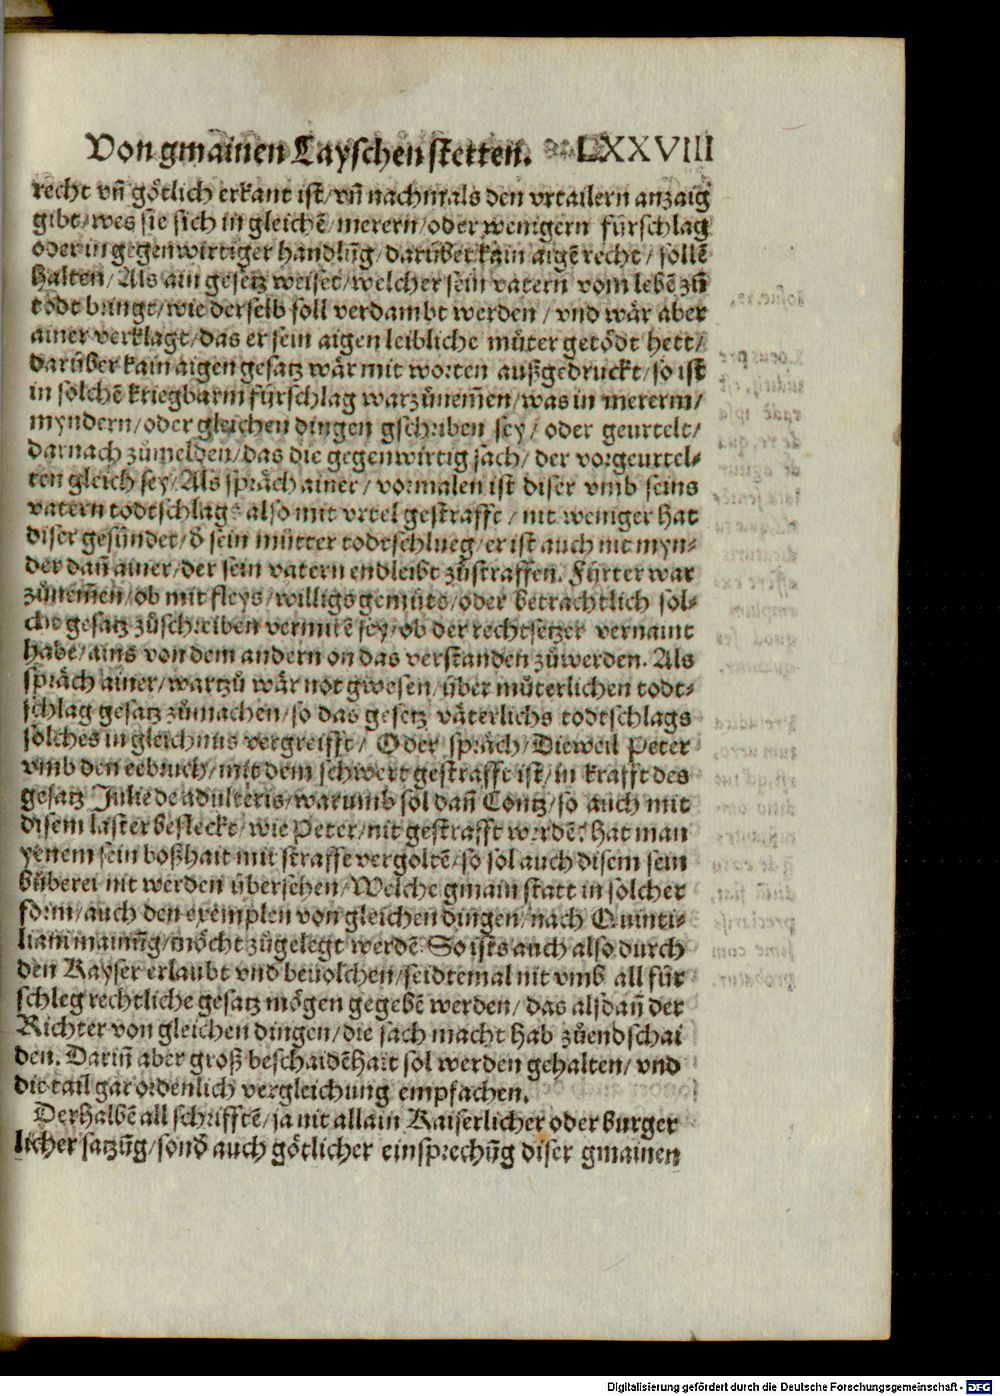 Von gmainen Layschen stetten. LXXVIII
recht vñ götlich erkant ist/ vñ nachmals den vrtailern anzaig
gibt/ wes sie sich in gleichē/ merern/ oder wenigern fürschlag
oder in gegenwirtiger handlūg/ darüber kain aigē recht/ söllē
halten/ Als ain gesetz weiset/ welcher sein vatern vom lebē zů
todt bringt/ wie derselb soll verdambt werden/ vnd wär aber
ainer verklagt/ das er sein aigen leibliche můter getödt hett/
darüber kain aigen gesatz wär mit worten außgedruckt/ so ist
in solchē kriegbarm fürschlag warzůnemēn/ was in mererm/
myndern/ oder gleichen dingen gschriben sey/ oder geurtelt/
darnach zůmelden/ das die gegenwirtig sach/ der vorgeurtel⸗
ten gleich sey/ Als spräch ainer/ vormalen ist diser vmb seins
vatern todtschlag also mit vrtel gestrafft/ nit weniger hat
diser gesündet/ ď sein můtter todtschlueg/ er ist auch nit myn⸗
der dañ ainer/ der sein vatern endleibt zůstraffen. Fürter war
zůnemēn/ ob mit fleys/ willigs gemüts/ oder betrachtlich sol⸗
che gesatz zůschreiben vermitē sey/ ob der rechtsetzer vermaint
habe/ ains von dem andern on das verstanden zůwerden. Als
spräch ainer/ wartzů wär not gwesen/ über můterlichen todt⸗
schlag gesatz zůmachen/ so das gesetz väterlichs todtschlags
solches in gleichnus vergreifft/ Oder spräch/ Dieweil Peter
vmb den eebruch/ mit dem schwert gestrafft ist/ in krafft des
gesatz Julie de adulteris/ warumb sol dañ Contz/ so auch mit
disem laster befleckt/ wie Peter/ nit gestrafft werdē? hat man
yenem sein boßhait mit straffe vergoltē/ so sol auch disem sein
büberei nit werden übersehen/ Welche gmain statt in solcher
form/ auch den exemplen von gleichen dingen/ nach Quinti⸗
liani mainūg/ möcht zůgelegt werdē. So ists auch also durch
den Kayser erlaubt vnd beuolchen/ seidtemal nit vmb all für
schleg rechtliche gesatz mögen gegebē werden/ das alsdañ der
Richter von gleichen dingen/ die sach macht hab zůendschai
den. Dariñ aber groß beschaidēhait sol werden gehalten/ vnd
die tail gar ordenlich vergleichung empfachen.
Derhalbē all schrifftē/ ja nit allain Kaiserlicher oder burger
licher satzūg/ sonď auch götlicher einsprechūg diser gmainen
Digitalisierung gefördert durch die Deutsche Forschungsgemeinschaft - DFG